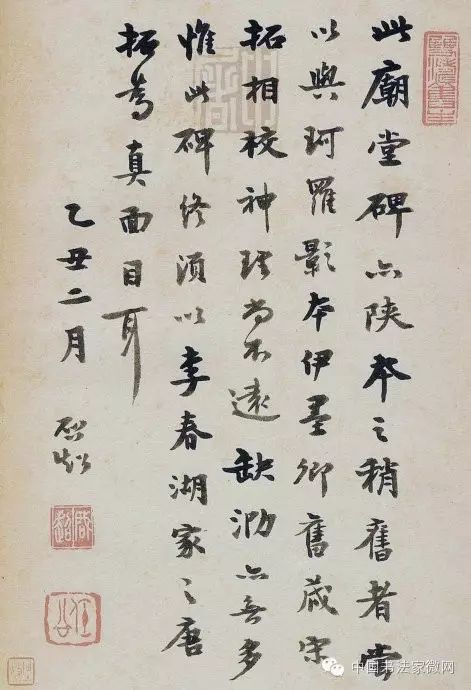 此廟堂碑亦陝本之稍舊者嘗
以與珂羅影本伊墨卿舊藏宋
拓相校神理尚不遠缺泐亦無多
惟此碑終須以李春湖家之唐
拓為真面目耳
乙丑二月 啟超
啟超
任公
中国书法家微网